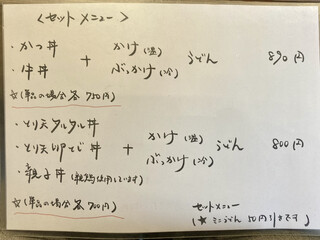 ＜セットメニュー＞
・かつ丼 ＋ かけ(温) うどん 890円
・牛丼 ぶっかけ(冷)
☆(単品の場合各750円)
・とり天タルタル丼
・とり天卵とじ丼 ＋ かけ(温) うどん 800円
ぶっかけ(冷)
・親子丼
☆(単品の場合各700円)
セットメニュー
(☆ミニうどん 50円引きです)